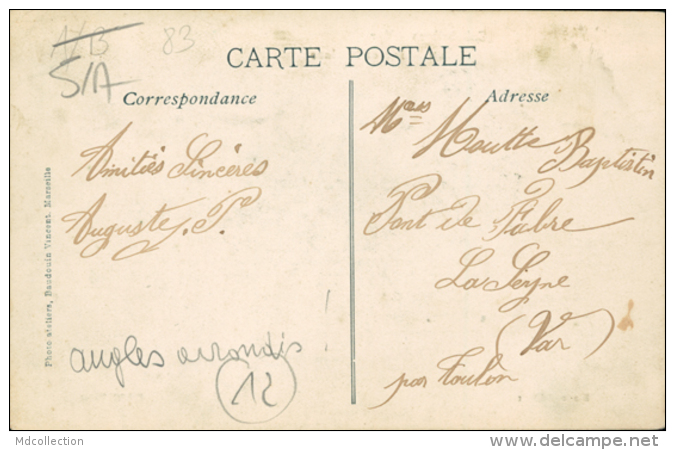 A/B
83
S/A
CARTE POSTALE
Correspondance
Adresse
Amitiés Sincères
Auguste. P.
Moutte
Baptistin
Pont de Fabre
La Seyne
(Var)
par Toulon
angles arrondis !
12
Photo ateliers, Baudouin Vincent, Marseille
Mdcollection
www.delcampe.net